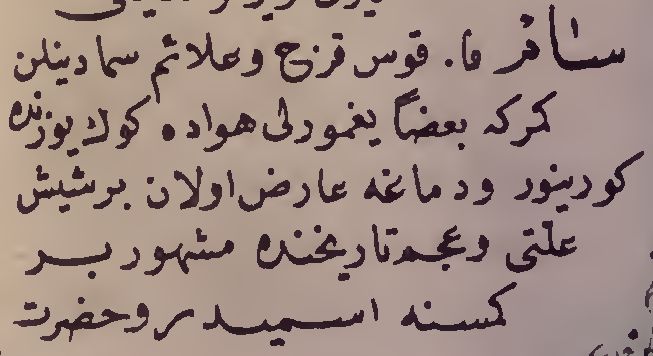 سام فا. قوس قزح وعلائم سما دينلن
كمركه بعضاً يغمورلى هواده كوك يوزنده
كورينور ودماغه عارض اولان برشيش
علتى وعجم تاريخنده مشهور بر
كمسنه اسميدر وحضرت